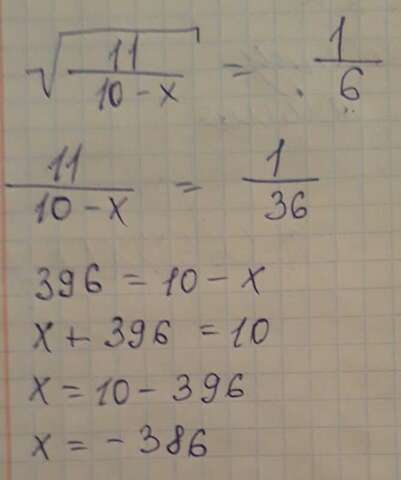 √(11/(10-x)) = 1/6
11/(10-x) = 1/36
396 = 10-x
x+396 = 10
x = 10-396
x = -386